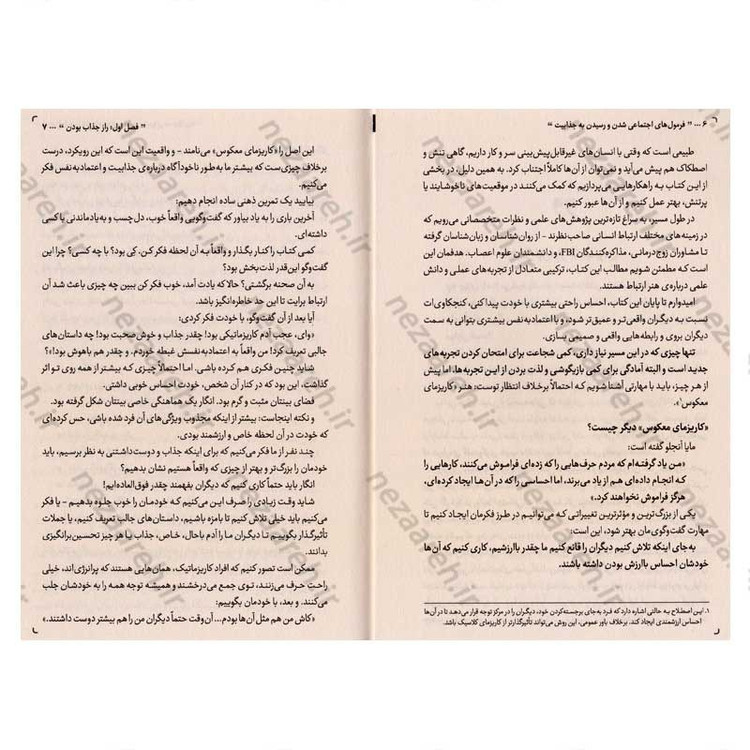 ۶ ... " فرمول‌های اجتماعی شدن و رسیدن به جذابیت "
طبیعی است که وقتی با انسان‌های غیرقابل‌پیش‌بینی سر و کار داریم، گاهی تنش و
اصطکاک هم پیش می‌آید و نمی‌توان از آن‌ها کاملاً اجتناب کرد. به همین دلیل، در بخشی
از این کتاب به راهکارهایی می‌پردازیم که کمک می‌کنند در موقعیت‌های ناخوشایند یا
پرتنش، بهتر عمل کنیم و از آن‌ها عبور کنیم.
در طول مسیر، به سراغ تازه‌ترین پژوهش‌های علمی و نظرات متخصصانی می‌رویم که
در زمینه‌های مختلف ارتباط انسانی صاحب‌نظرند - از روان‌شناسان و زبان‌شناسان گرفته
تا مشاوران زوج‌درمانی، مذاکره‌کنندگان FBI، و دانشمندان علوم اعصاب. هدفمان این
است که مطمئن شویم مطالب این کتاب، ترکیبی متعادل از تجربه‌های عملی و دانش
علمی درباره‌ی هنر ارتباط هستند.
امیدوارم تا پایان این کتاب، احساس راحتی بیشتری با خودت پیدا کنی، کنجکاوی‌ات
نسبت به دیگران واقعی‌تر و عمیق‌تر شود، و با اعتمادبه‌نفس بیشتری بتوانی به سمت
دیگران بروی و رابطه‌هایی واقعی و صمیمی بسازی.
تنها چیزی که در این مسیر نیاز داری، کمی شجاعت برای امتحان کردن تجربه‌های
جدید است و البته آمادگی برای کمی بازیگوشی و لذت بردن از این تجربه‌ها. اما پیش
از هر چیز، باید با مهارتی آشنا شویم که احتمالاً برخلاف انتظار توست: هنر «کاریزمای
معکوس۱».
«کاریزمای معکوس» دیگر چیست؟
مایا آنجلو گفته است:
«من یاد گرفته‌ام که مردم حرف‌هایی را که زده‌ای فراموش می‌کنند، کارهایی را
که انجام داده‌ای هم از یاد می‌برند، اما احساسی را که در آن‌ها ایجاد کرده‌ای،
هرگز فراموش نخواهند کرد.»
یکی از بزرگ‌ترین و مؤثرترین تغییراتی که می‌توانیم در طرز فکرمان ایجاد کنیم تا
مهارت گفت‌وگوی‌مان بهتر شود، این است:
به‌جای اینکه تلاش کنیم دیگران را قانع کنیم ما چقدر باارزشیم، کاری کنیم که آن‌ها
خودشان احساس باارزش بودن داشته باشند.
۱. این اصطلاح به حالتی اشاره دارد که فرد به‌جای برجسته‌کردن خود، دیگران را در مرکز توجه قرار می‌دهد تا در آن‌ها
احساس ارزشمندی ایجاد کند. برخلاف باور عمومی، این روش می‌تواند تأثیرگذارتر از کاریزمای کلاسیک باشد.
" فصل اول: راز جذاب بودن " ... ۷
این اصل را «کاریزمای معکوس» می‌نامند - و واقعیت این است که این رویکرد، درست
برخلاف چیزی‌ست که بیشتر ما به‌طور ناخودآگاه درباره‌ی جذابیت و اعتمادبه‌نفس فکر
می‌کنیم.
بیایید یک تمرین ذهنی ساده انجام دهیم:
آخرین باری را به یاد بیاور که گفت‌وگویی واقعاً خوب، دل‌چسب و به‌یادماندنی با کسی
داشته‌ای.
کمی کتاب را کنار بگذار و واقعاً به آن لحظه فکر کن. کِی بود؟ با چه کسی؟ چرا این
گفت‌وگو این‌قدر لذت‌بخش بود؟
به آن صحنه برگشتی؟ حالا که یادت آمد، خوب فکر کن ببین چه چیزی باعث شد آن
ارتباط برایت تا این حد خاطره‌انگیز باشد.
آیا بعد از آن گفت‌وگو، با خودت فکر کردی:
«وای، عجب آدم کاریزماتیکی بود! چقدر جذاب و خوش‌صحبت بود! چه داستان‌های
جالبی تعریف کرد! من واقعاً به اعتمادبه‌نفسش غبطه خوردم. و چقدر هم باهوش بود!»؟
شاید چنین فکری هم کرده باشی. اما احتمالاً چیزی که بیشتر از همه روی تو اثر
گذاشت، این بود که در کنار آن شخص، خودت احساس خوبی داشتی.
فضای بینتان مثبت و گرم بود. انگار یک هماهنگی خاصی بینتان شکل گرفته بود.
و نکته اینجاست: بیشتر از اینکه مجذوب ویژگی‌های آن فرد شده باشی، حس کرده‌ای
که خودت در آن لحظه خاص و ارزشمند بودی.
چند نفر از ما فکر می‌کنیم که برای اینکه جذاب و دوست‌داشتنی به نظر برسیم، باید
خودمان را بزرگ‌تر و بهتر از چیزی که واقعاً هستیم نشان بدهیم؟
انگار باید حتماً کاری کنیم که دیگران بفهمند چقدر فوق‌العاده‌ایم!
شاید وقت زیادی را صرف این می‌کنیم که خودمان را خوب جلوه بدهیم - یا فکر
می‌کنیم باید خیلی تلاش کنیم تا بامزه باشیم، داستان‌های جالب تعریف کنیم، یا جملات
تأثیرگذار بگوییم تا دیگران ما را آدم باحال، خاص، جذاب یا هر چیز تحسین‌برانگیزی
بدانند.
ممکن است تصور کنیم که افراد کاریزماتیک، همان‌هایی هستند که پرانرژی‌اند، خیلی
راحت حرف می‌زنند، توی جمع می‌درخشند و همیشه توجه همه را به خودشان جلب
می‌کنند. و بعد، با خودمان بگوییم:
«کاش من هم مثل آن‌ها بودم... آن‌وقت حتماً دیگران من را هم بیشتر دوست داشتند.»
nezaareh.ir